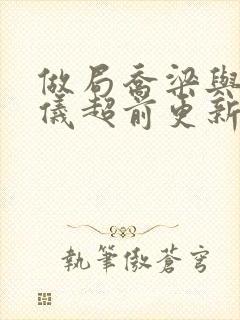 做局喬梁與
儀超前更新
執筆傲蒼穹